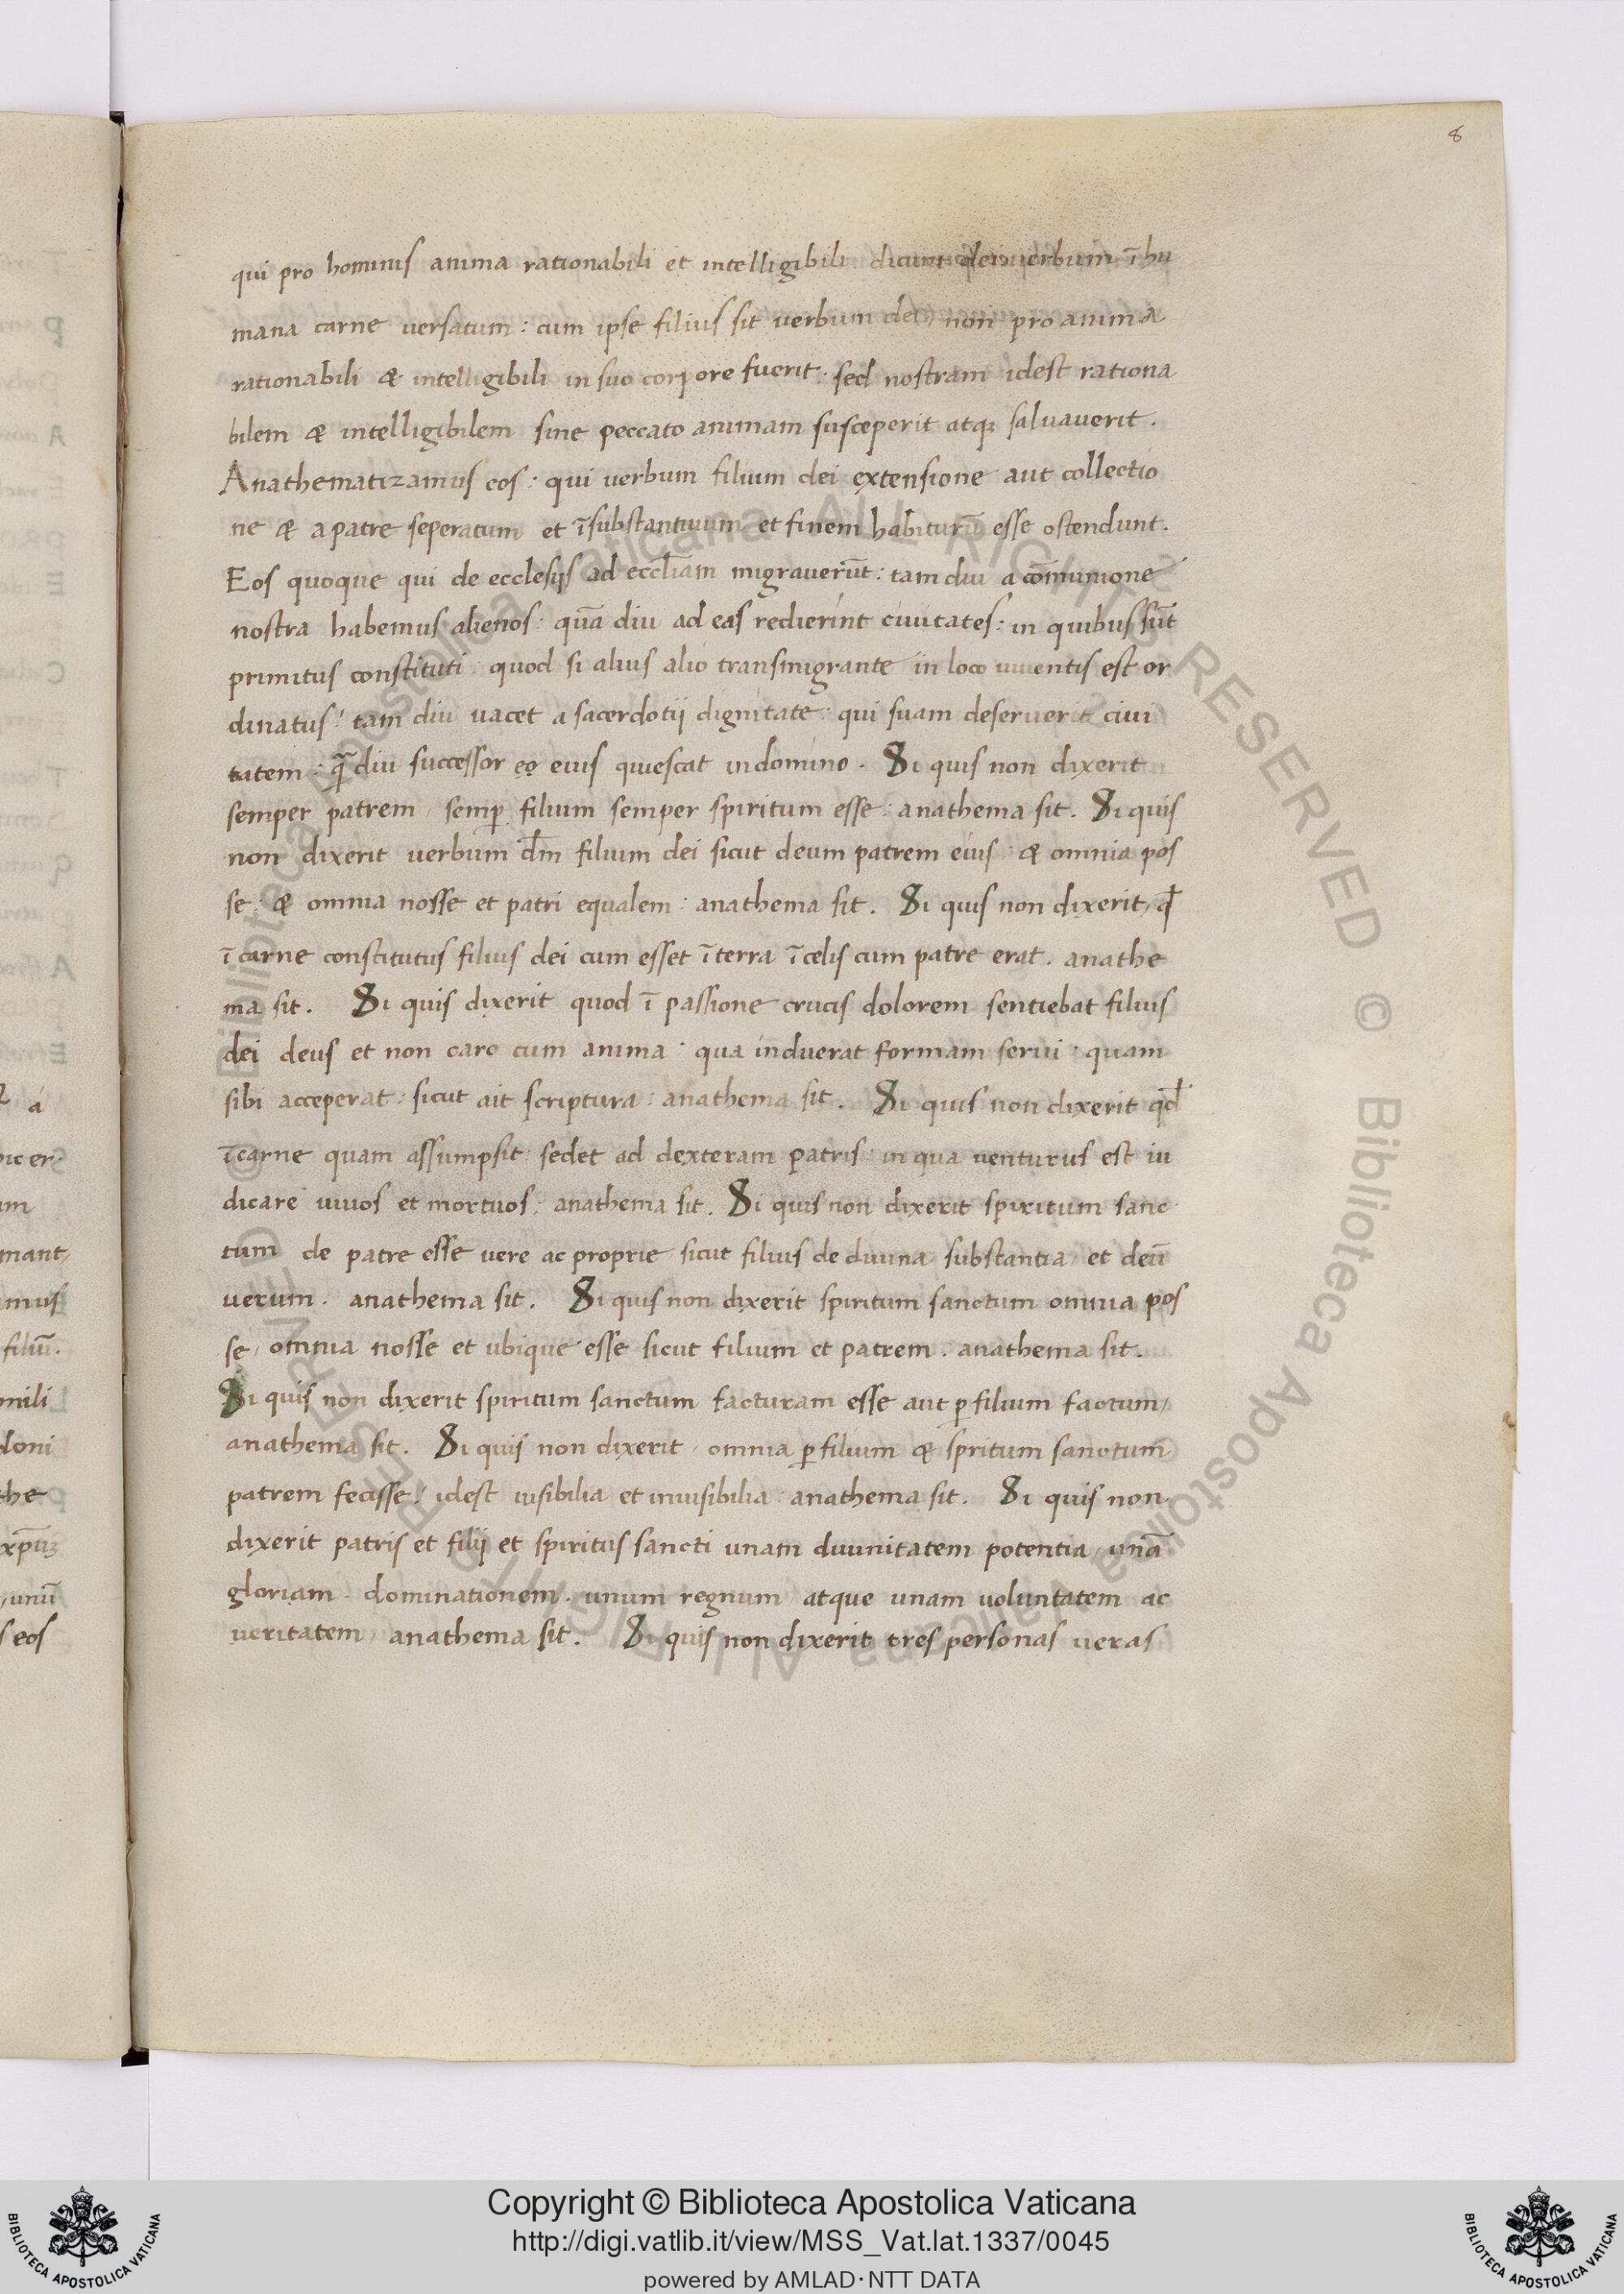 8
qui pro hominis anima rationabili et intelligibili dicunt dei verbum ī hu
mana carne versatum : cum ipse filius sit verbum dei, non pro anima
rationabili & intelligibili in suo corpore fuerit : sed nostram idest rationa
bilem & intelligibilem sine peccato animam susceperit atqȝ salvaverit .
Anathematizamus eos : qui verbum filium dei extensione aut collectio
ne & a patre seperatum et ī substantiuum et finem habiturū esse ostendunt .
Eos quoque qui de ecclesijs ad eccl̄iam migraverūt : tam diu a cōmunione
nostra habemus alienos : quā diu ad eas redierint civitates : in quibus sūt
primitus constituti : quod si alius alio transmigrante in loco viventis est or
dinatus : tam diu vacet a sacerdotij dignitate : qui suam deseruerit civi
tatem : q̄ diu successor eo eius quiescat in domino . Si quis non dixerit
semper patrem , semꝑ filium semper spiritum esse : anathema sit . Si quis
non dixerit verbum d̄m filium dei sicut deum patrem eius : & omnia pos
se : & omnia nosse et patri equalem : anathema sit . Si quis non dixerit, qđ
ī carne constitutus filius dei cum esset ī terra ī celis cum patre erat . anathe
ma sit . Si quis dixerit quod ī passione crucis dolorem sentiebat filius
dei deus et non caro cum anima : qua induerat formam servi : quam
sibi acceperat : sicut ait scriptura : anathema sit . Si quis non dixerit qđ
ī carne quam assumpsit sedet ad dexteram patris : in qua venturus est iu
dicare vivos et mortuos : anathema sit . Si quis non dixerit spiritum sanc
tum de patre esse vere ac proprie sicut filius de divina substantia et deū
verum . anathema sit . Si quis non dixerit spiritum sanctum omnia pos
se, omnia nosse et ubique esse sicut filium et patrem . anathema sit .
Si quis non dixerit spiritum sanctum facturam esse aut ꝑ filium factum,
anathema sit . Si quis non dixerit , omnia ꝑ filium & spritum sanctum
patrem fecisse : idest visibilia et invisibilia : anathema sit . Si quis non
dixerit patris et filij et spiritus sancti unam divinitatem potentia, unā
gloriam . dominationem . unum regnum atque unam voluntatem ac
veritatem , anathema sit . Si quis non dixerit tres personas veras
Copyright © Biblioteca Apostolica Vaticana
http://digi.vatlib.it/view/MSS_Vat.lat.1337/0045
powered by AMLAD·NTT DATA
BIBLIOTECA APOSTOLICA VATICANA
BIBLIOTECA APOSTOLICA VATICANA